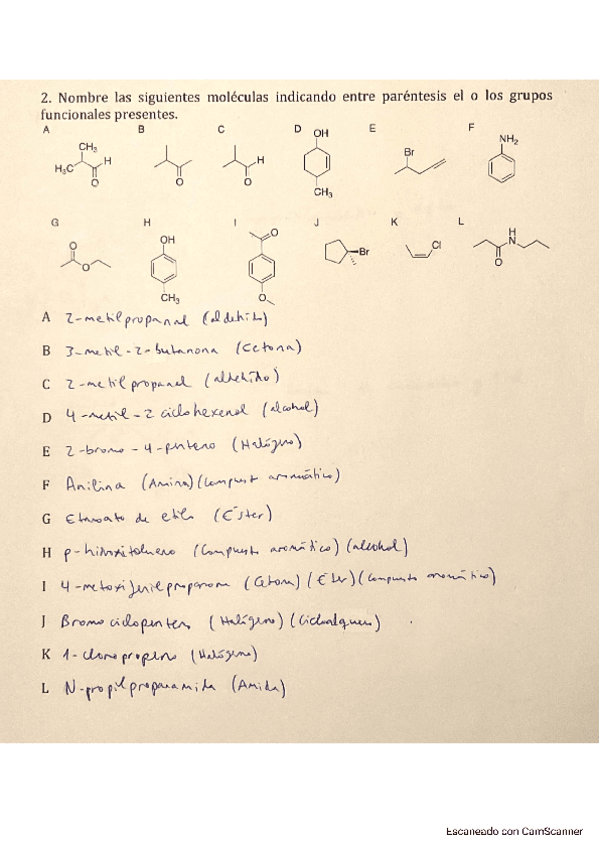 2. Nombre las siguientes moléculas indicando entre paréntesis el o los grupos
funcionales presentes.
A B C D E F
CH3 H3C H O
O
H O
OH CH3
Br
NH2
G H I J K L
O O
OH CH3
O O
Br
Cl
H N O
A 2-metilpropanal (aldehído)
B 3-metil-2-butanona (Cetona)
C 2-metilpropanal (aldehído)
D 4-metil-2 ciclohexenol (alcohol)
E 2-bromo-4-penteno (Halógeno)
F Anilina (Amina) (Compuesto aromático)
G Etanoato de etilo (Éster)
H p-hidroxitolueno (Compuesto aromático) (alcohol)
I 4-metoxifenilpropanona (Cetona) (Éter) (Compuesto aromático)
J Bromociclopenteno (Halógeno) (Cicloalqueno)
K 1-cloropropeno (Halógeno)
L N-propilpropanamida (Amida)
Escaneado con CamScanner